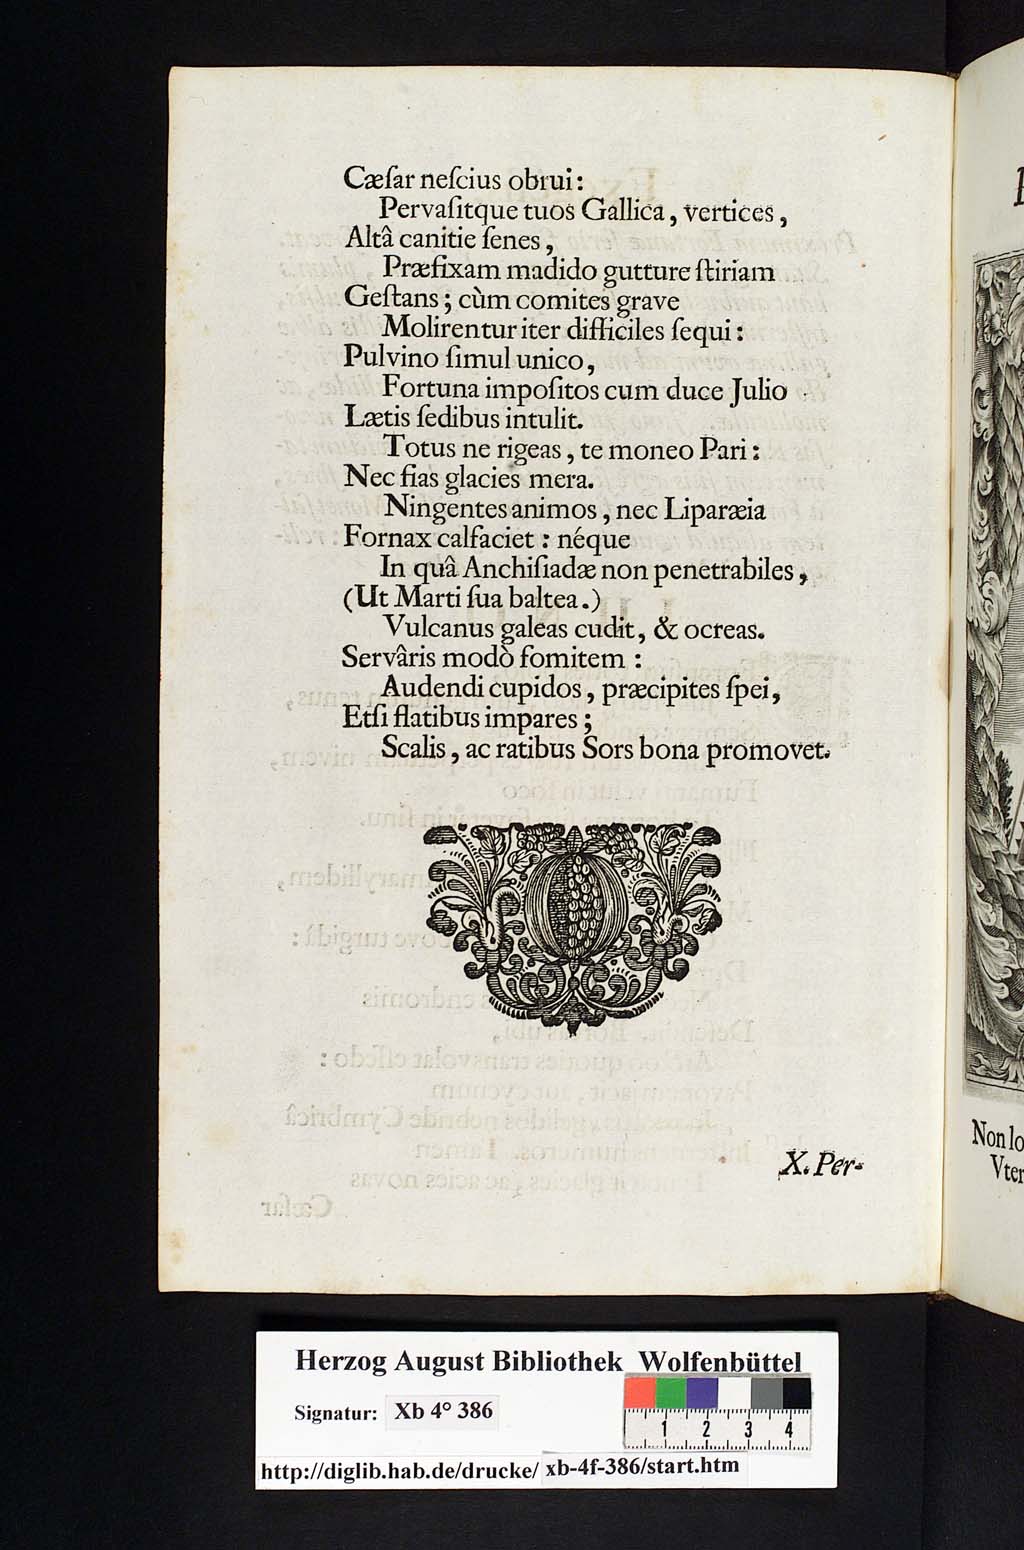 Cæſar neſcius obrui:
Pervaſitque tuos Gallica, vertices,
Altâ canitie ſenes,
Præfixam madido gutture ſtiriam
Geſtans; cùm comites grave
Molirentur iter difficiles ſequi:
Pulvino ſimul unico,
Fortuna impoſitos cum duce Julio
Lætis ſedibus intulit.
Totus ne rigeas, te moneo Pari:
Nec fias glacies mera.
Ningentes animos, nec Liparæia
Fornax calfaciet: néque
In quâ Anchiſiadæ non penetrabiles,
(Ut Marti ſua baltea.)
Vulcanus galeas cudit, & ocreas.
Servâris modò fomitem:
Audendi cupidos, præcipites ſpei,
Etſi flatibus impares;
Scalis, ac ratibus Sors bona promovet.
X. Per-
Non lo
Vter
Herzog August Bibliothek Wolfenbüttel
Signatur: Xb 4° 386
1 2 3 4
http://diglib.hab.de/drucke/ xb-4f-386/start.htm